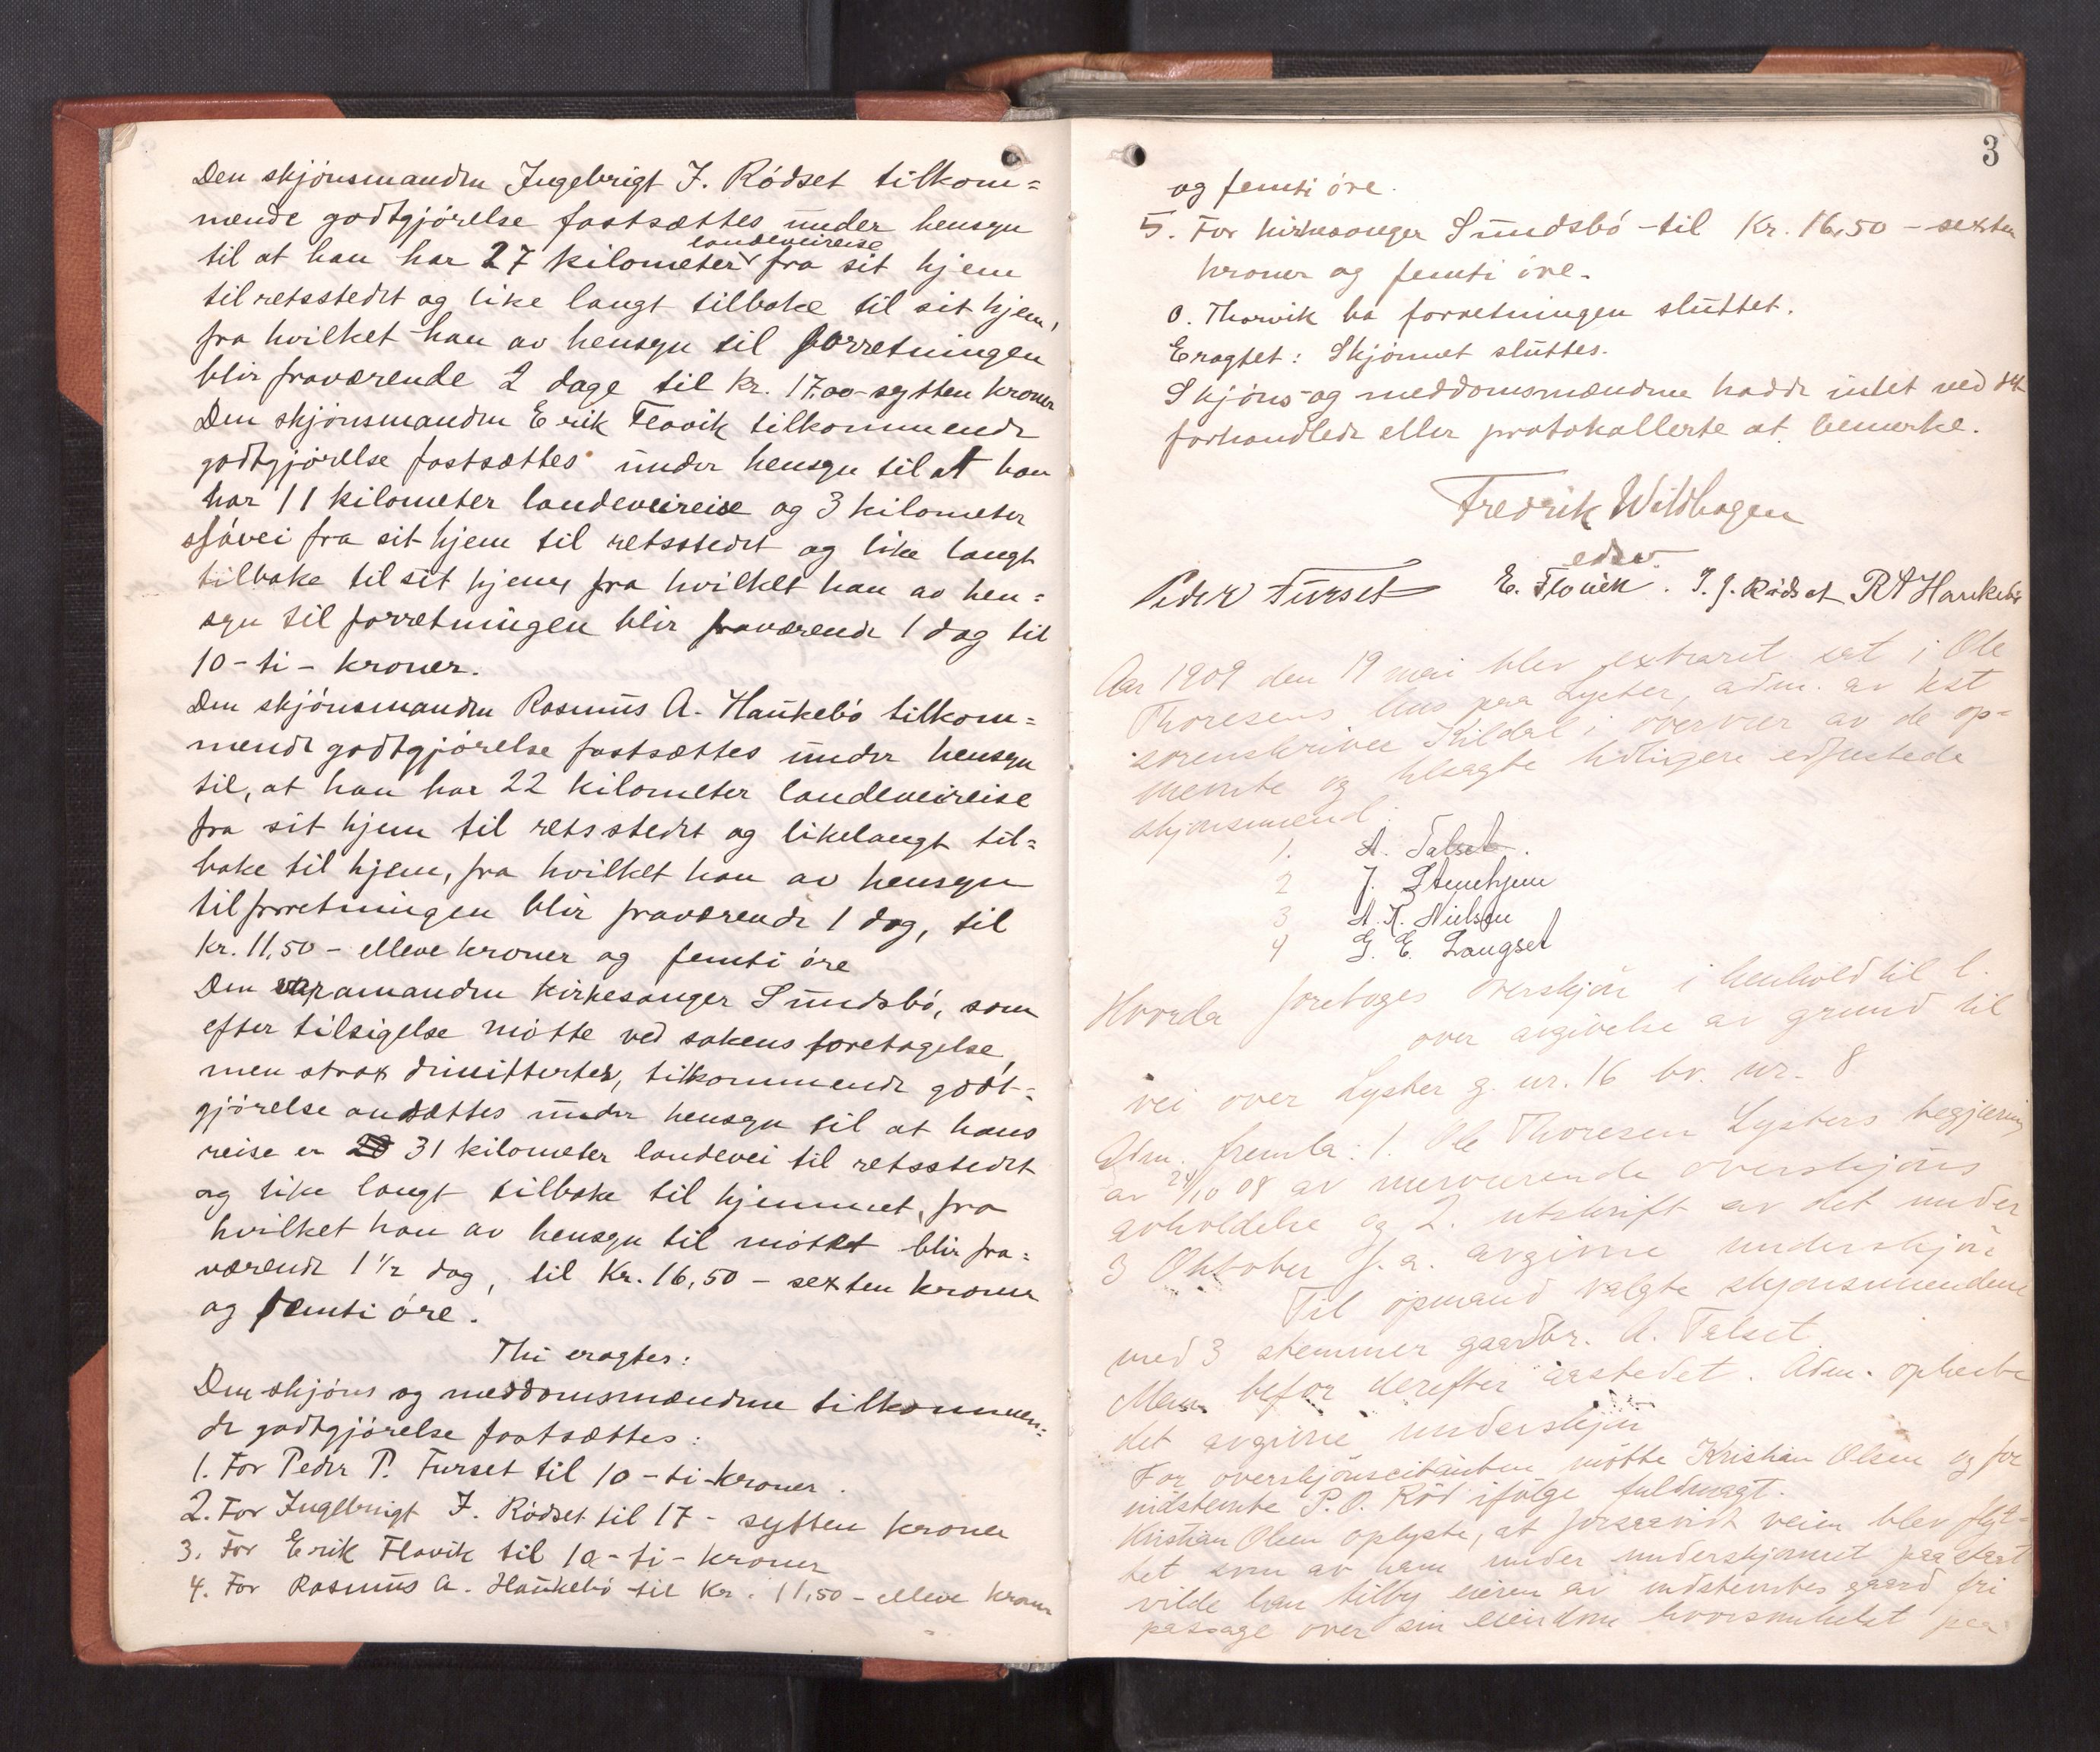 Den skjönsmanden Ingebrigt J. Rödset tilkom=
mende godtgjörelse fastsættes under hensyn
landeveireise
til at han har 27 kilometer fra sit hjem
til retsstedet og like langt tilbake til sit hjem,
fra hvilket han av hensyn til forretningen
blir fraværende 2 dage til kr. 17.00 - sytten kroner
Den skjönsmanden Erik Flovik tilkommende
godtgjörelse fastsættes under hensyn til at han
har 11 kilometer landeveireise og 3 kilometer
sjövei fra sit hjem til retsstedet og like langt
tilbake til sit hjem, fra hvilket han av hen=
syn til forretningen blir fraværende 1 dag til
10 - ti - kroner.
Den skjönsmanden Rasmus A. Haukebö tilkom=
mende godtgjörelse fastsættes under hensyn
til, at han har 22 kilometer landeveireise
fra sit hjem til retsstedet og likelangt til=
bake til hjem, fra hvilket han av hensyn
til forretningen blir fraværende 1 dag, til
kr. 11,50 - elleve kroner og femti öre
Den varamanden kirkesanger Sundsbö, som
efter tilsigelse mötte ved sakens foretagelse,
men strax dimittertes, tilkommende godt=
gjörelse ansættes under hensyn til at hans
reise er 31 kilometer landevei til retsstedet
og like langt tilbake til hjemmet, fra
hvilket han av hensyn til mötet blir fra=
værende 1 1/2 dag, til Kr. 16,50 - sexten kroner
og femti öre.
Thi eragtes:
Den skjöns og meddomsmændene tilkommen=
de godtgjörelse fastsættes:
1. For Peder P. Furset til 10 - ti - kroner.
2. For Ingebrigt J. Rödset til 17 - sytten kroner
3. For Erik Flovik til 10 - ti - kroner
4. For Rasmus A. Haukebö til Kr. 11,50 - elleve kroner
3
og femti öre.
5. For kirkesanger Sundsbö - til Kr. 16,50 - sexten
kroner og femti öre.
O. Thorvik ba forretningen sluttet.
Eragtet: Skjönnet sluttes.
Skjöns- og meddomsmændene hadde intet ved det
forhandlede eller protokollerte at bemerke.
Fredrik Wildhagen
edsv.
Peder Furset E. Flovik. I. J. Rödset R A Haukebö
Aar 1909 den 19 mai blev extraret sat i Ole
Thoresens hus paa Lyster, adm. av kst
sorenskriver Kildal i overvær av de op=
nævnte og tilsagte tidligere edfæstede
skjønsmænd:
1. A. Talset.
2 J. Stenehjem
3 A. K. Nielsen
4 G. E. Langset
Hvorda foretoges overskjön i henhold til l.
over avgivelse av grund til
vei over Lyster g. nr. 16 br. nr. 8
Adm. fremla: 1. Ole Thoresen Lysters begjæring
av 24/10 08 av nærværende overskjöns
avholdelse og 2. utskrift av det under
3 Oktober f. a. avgivne underskjön
Til opmand valgte skjønsmændene
med 3 stemmer gaardbr. A. Talset
Man befor derefter aastedet. Adm. oplæste
det avgivne underskjön
For overskjönscitanten mötte Kristian Olsen og for
indstevnte P. O. Röd ifölge fuldmagt.
Kristian Olsen oplyste, at forsaavidt veien blev flyt=
tet som av ham under underskjønnet paastaat
vilde han tilby eieren av indstevntes gaard fri
passage over sin eiendom hvorsomhelst paa